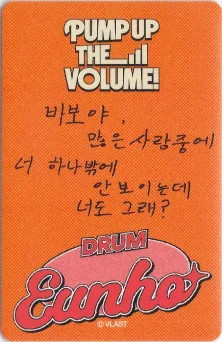 PUMP UP
THE
VOLUME!
바보야,
많은 사람중에
너 하나밖에
안 보이는데
너도 그래?
DRUM
Eunho
© VLAST